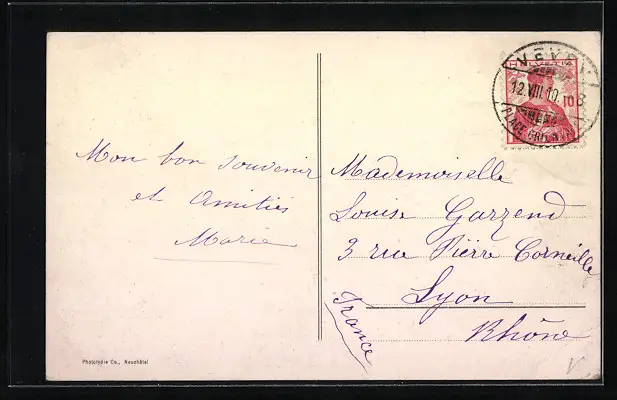 VEVEY
HELVETIA
12.VIII.10
10
Mon bon souvenir
et Amitiés
Marie
Mademoiselle
Louise Garzend
3 rue Pierre Corneille
Lyon
Rhône
France
Phototypie Co., Neuchâtel